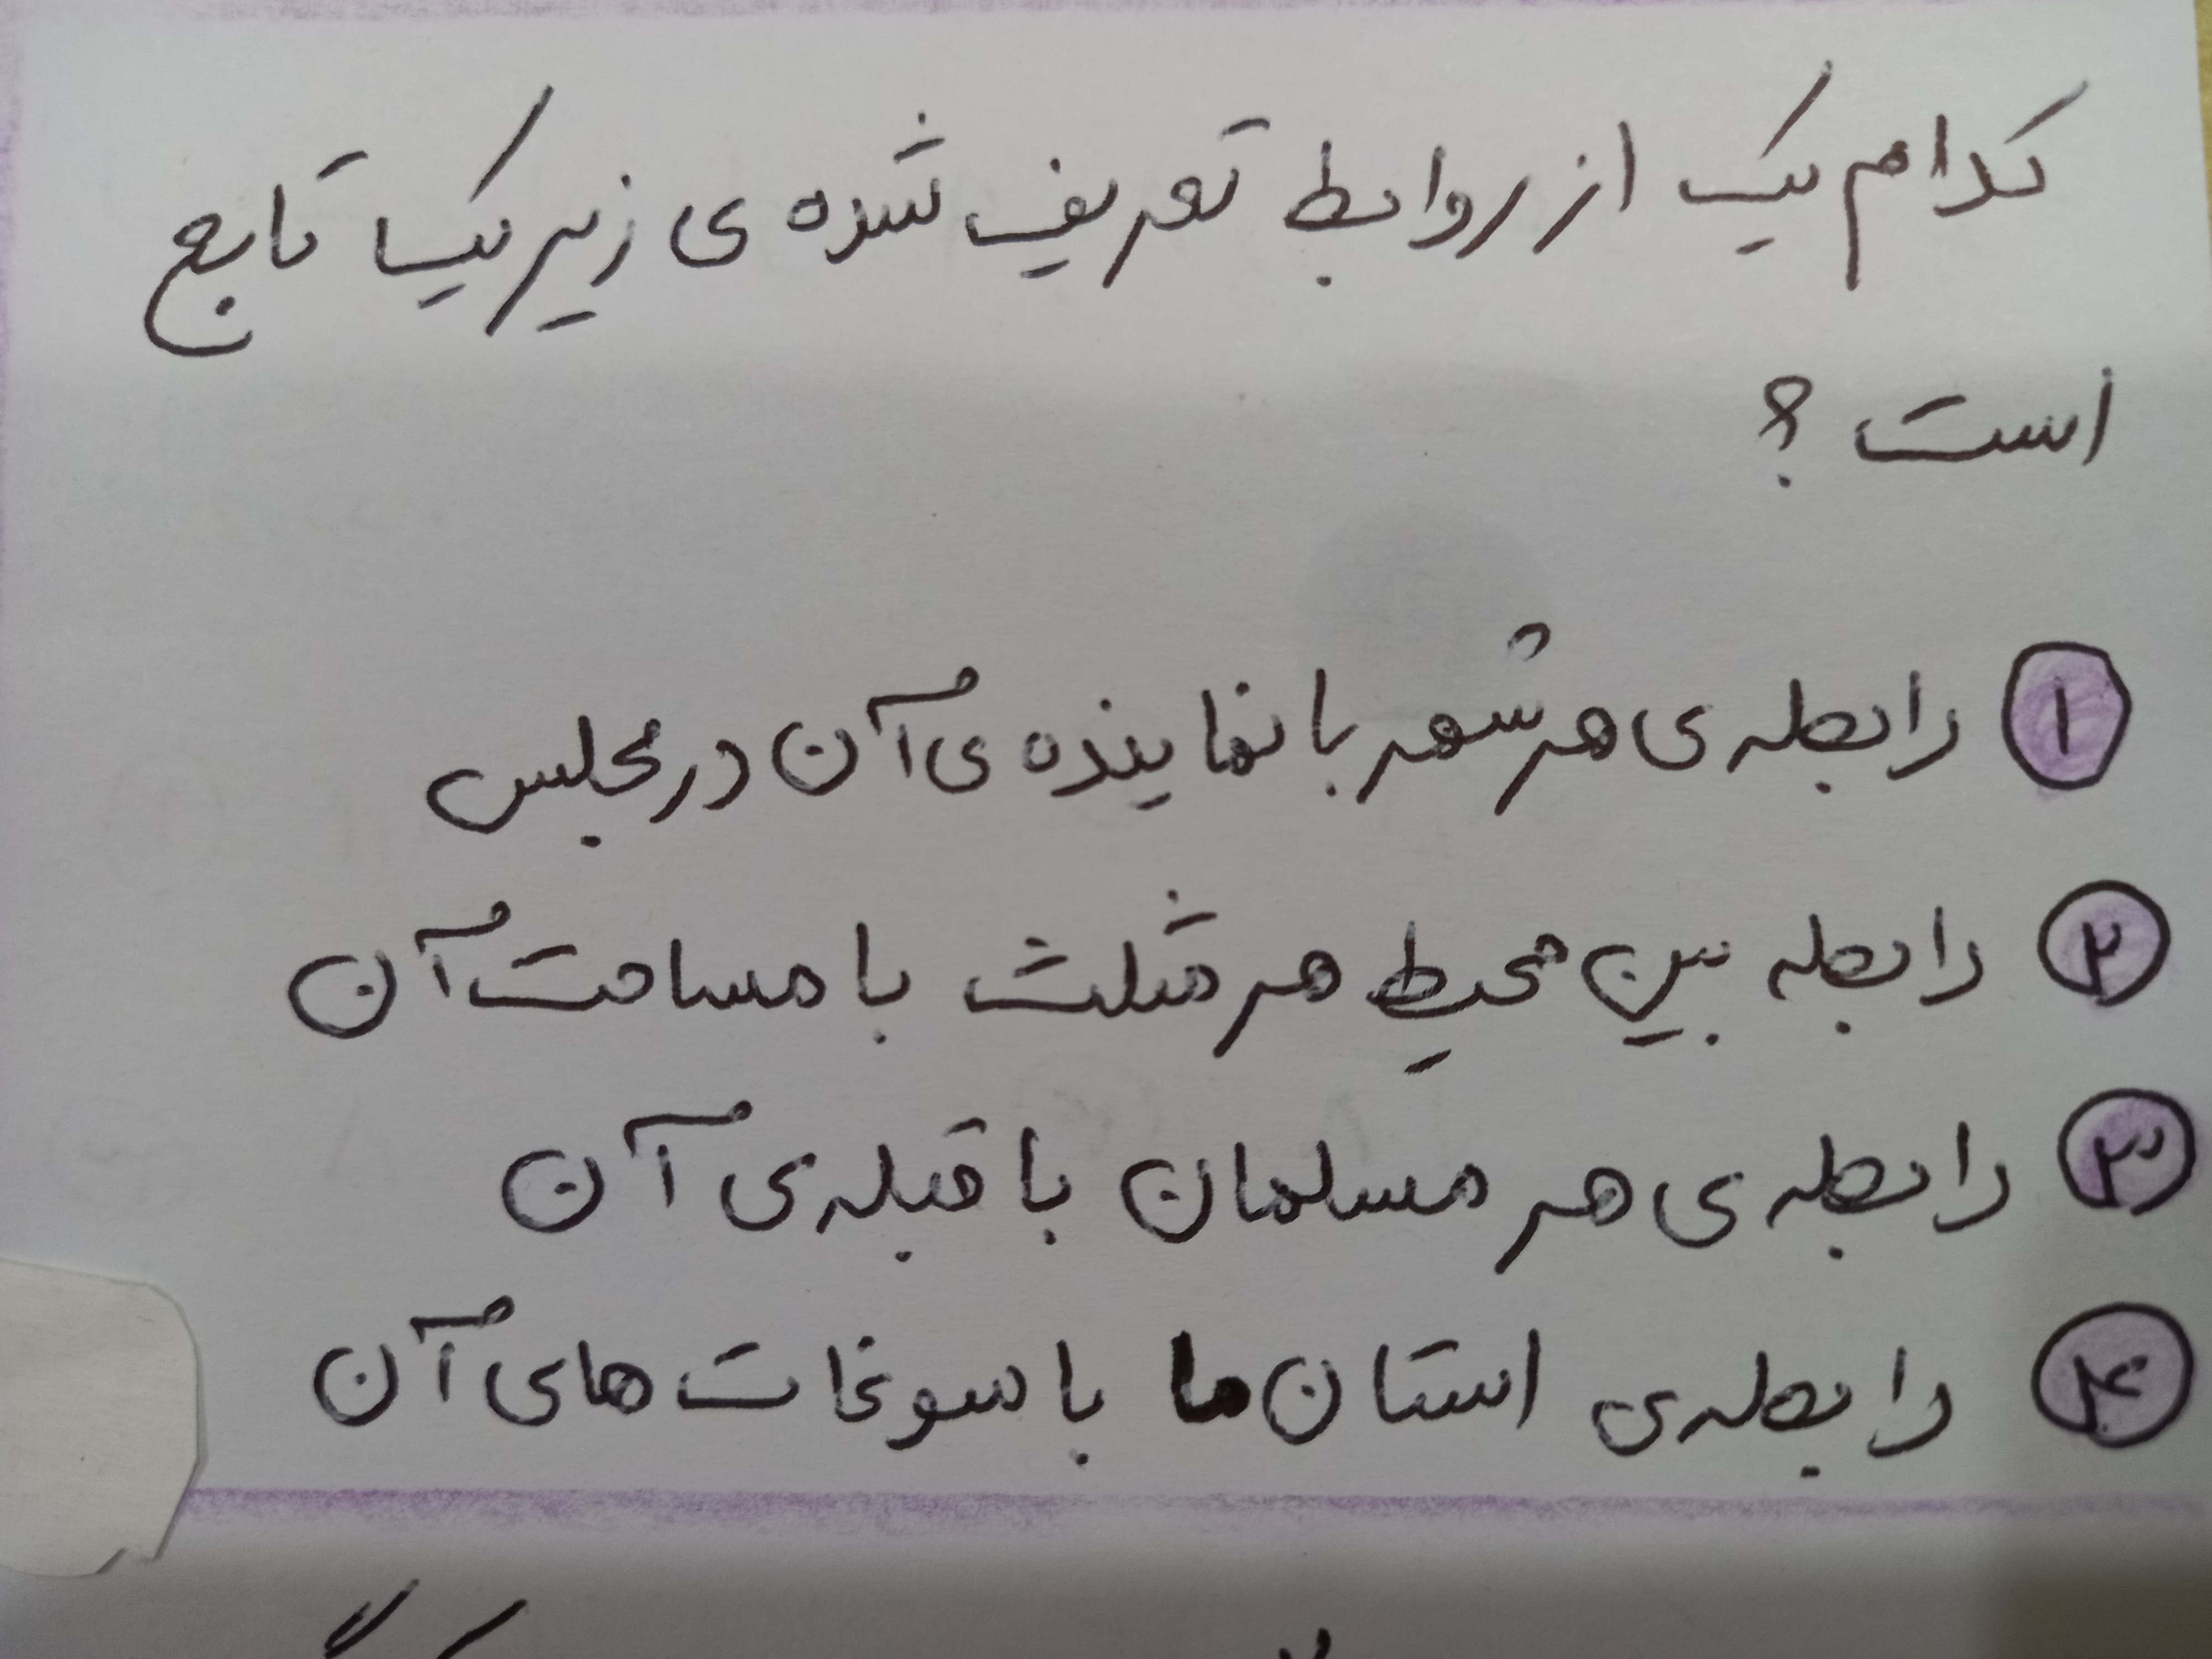 کدام یک از روابط تعریف شده ی زیر یک تابع
است ؟
۱ رابطه ی هر شهر با نماینده ی آن در مجلس
۲ رابطه بین محیط هر مثلث با مساحت آن
۳ رابطه ی هر مسلمان با قبله ی آن
۴ رابطه ی استان ها با سوغات های آن